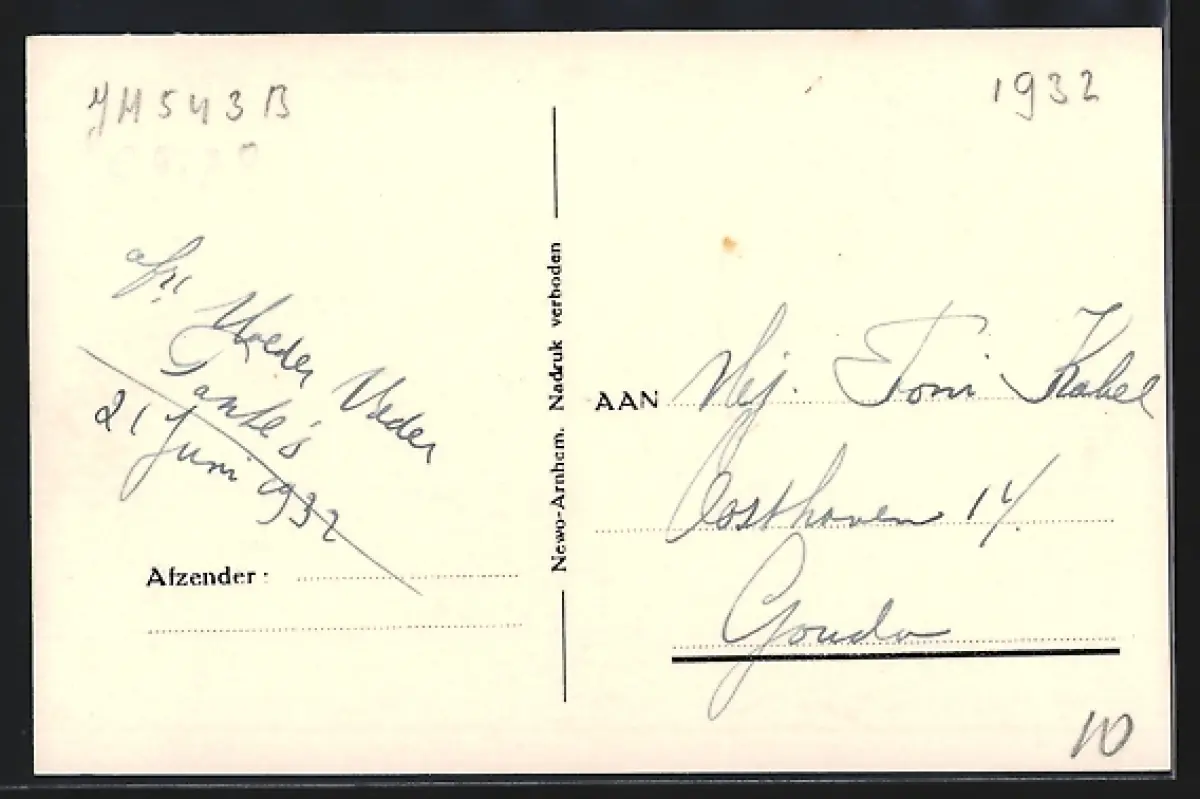 JH543B
1932
afz:
Moeder Vader
Tante's
21 Juni 1932
Afzender:
Newo-Arnhem. Nadruk verboden
AAN Mej. Toni Kabel
Oosthaven 14.
Gouda
10